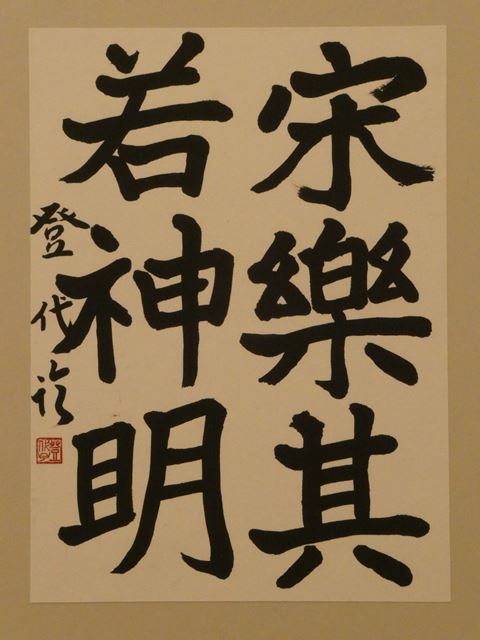 宋樂其
若神明
登代臨